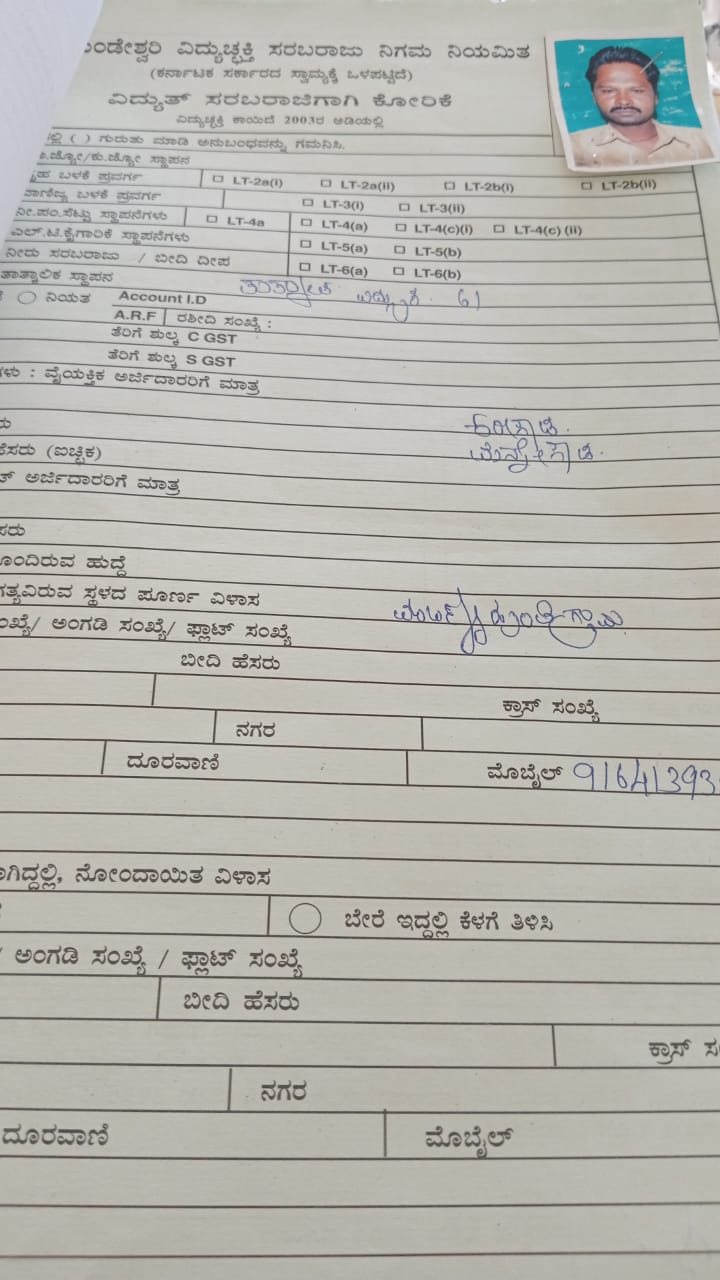 ಂಡೇಶ್ವರಿ ವಿದ್ಯುಚ್ಛಕ್ತಿ ಸರಬರಾಜು ನಿಗಮ ನಿಯಮಿತ
(ಕರ್ನಾಟಕ ಸರ್ಕಾರದ ಸ್ವಾಮ್ಯಕ್ಕೆ ಒಳಪಟ್ಟಿದೆ)
ವಿದ್ಯುತ್ ಸರಬರಾಜಿಗಾಗಿ ಕೋರಿಕೆ
ವಿದ್ಯುಚ್ಛಕ್ತಿ ಕಾಯಿದೆ 2003ರ ಅಡಿಯಲ್ಲಿ
ಲ್ಲಿ ( ) ಗುರುತು ಮಾಡಿ ಅನುಬಂಧವನ್ನು ಗಮನಿಸಿ.
ಜ್ಯೋ/ಕು.ಜ್ಯೋ ಸ್ಥಾಪನ
ಬಳಕೆ ಪ್ರವರ್ಗ □ LT-2a(i) □ LT-2a(ii) □ LT-2b(i) □ LT-2b(ii)
ವಾಣಿಜ್ಯ ಬಳಕೆ ಪ್ರವರ್ಗ □ LT-3(i) □ LT-3(ii)
ನೀ.ಪಂ.ಸೆಟ್ಟು ಸ್ಥಾಪನೆಗಳು □ LT-4a □ LT-4(a) □ LT-4(c)(i) □ LT-4(c) (ii)
ಎಲ್.ಟಿ.ಕೈಗಾರಿಕೆ ಸ್ಥಾಪನೆಗಳು □ LT-5(a) □ LT-5(b)
ನೀರು ಸರಬರಾಜು / ಬೀದಿ ದೀಪ □ LT-6(a) □ LT-6(b)
ತಾತ್ಕಾಲಿಕ ಸ್ಥಾಪನ
ನಿಯತ Account I.D 61
A.R.F ರಶೀದಿ ಸಂಖ್ಯೆ :
ತೆರಿಗೆ ಶುಲ್ಕ C GST
ತೆರಿಗೆ ಶುಲ್ಕ S GST
ಗಳು : ವೈಯಕ್ತಿಕ ಅರ್ಜಿದಾರರಿಗೆ ಮಾತ್ರ
ರು
ಹೆಸರು (ಐಚ್ಛಿಕ)
ಅರ್ಜಿದಾರರಿಗೆ ಮಾತ್ರ
ಸರು
ೊಂದಿರುವ ಹುದ್ದೆ
ಗತ್ಯವಿರುವ ಸ್ಥಳದ ಪೂರ್ಣ ವಿಳಾಸ
ಂಖ್ಯೆ/ ಅಂಗಡಿ ಸಂಖ್ಯೆ/ ಫ್ಲಾಟ್ ಸಂಖ್ಯೆ
ಬೀದಿ ಹೆಸರು
ಕ್ರಾಸ್ ಸಂಖ್ಯೆ
ನಗರ
ದೂರವಾಣಿ ಮೊಬೈಲ್ 91641393
ಾಗಿದ್ದಲ್ಲಿ, ನೋಂದಾಯಿತ ವಿಳಾಸ
ಬೇರೆ ಇದ್ದಲ್ಲಿ ಕೆಳಗೆ ತಿಳಿಸಿ
/ ಅಂಗಡಿ ಸಂಖ್ಯೆ / ಫ್ಲಾಟ್ ಸಂಖ್ಯೆ
ಬೀದಿ ಹೆಸರು
ಕ್ರಾಸ್ ಸ
ನಗರ
ದೂರವಾಣಿ ಮೊಬೈಲ್